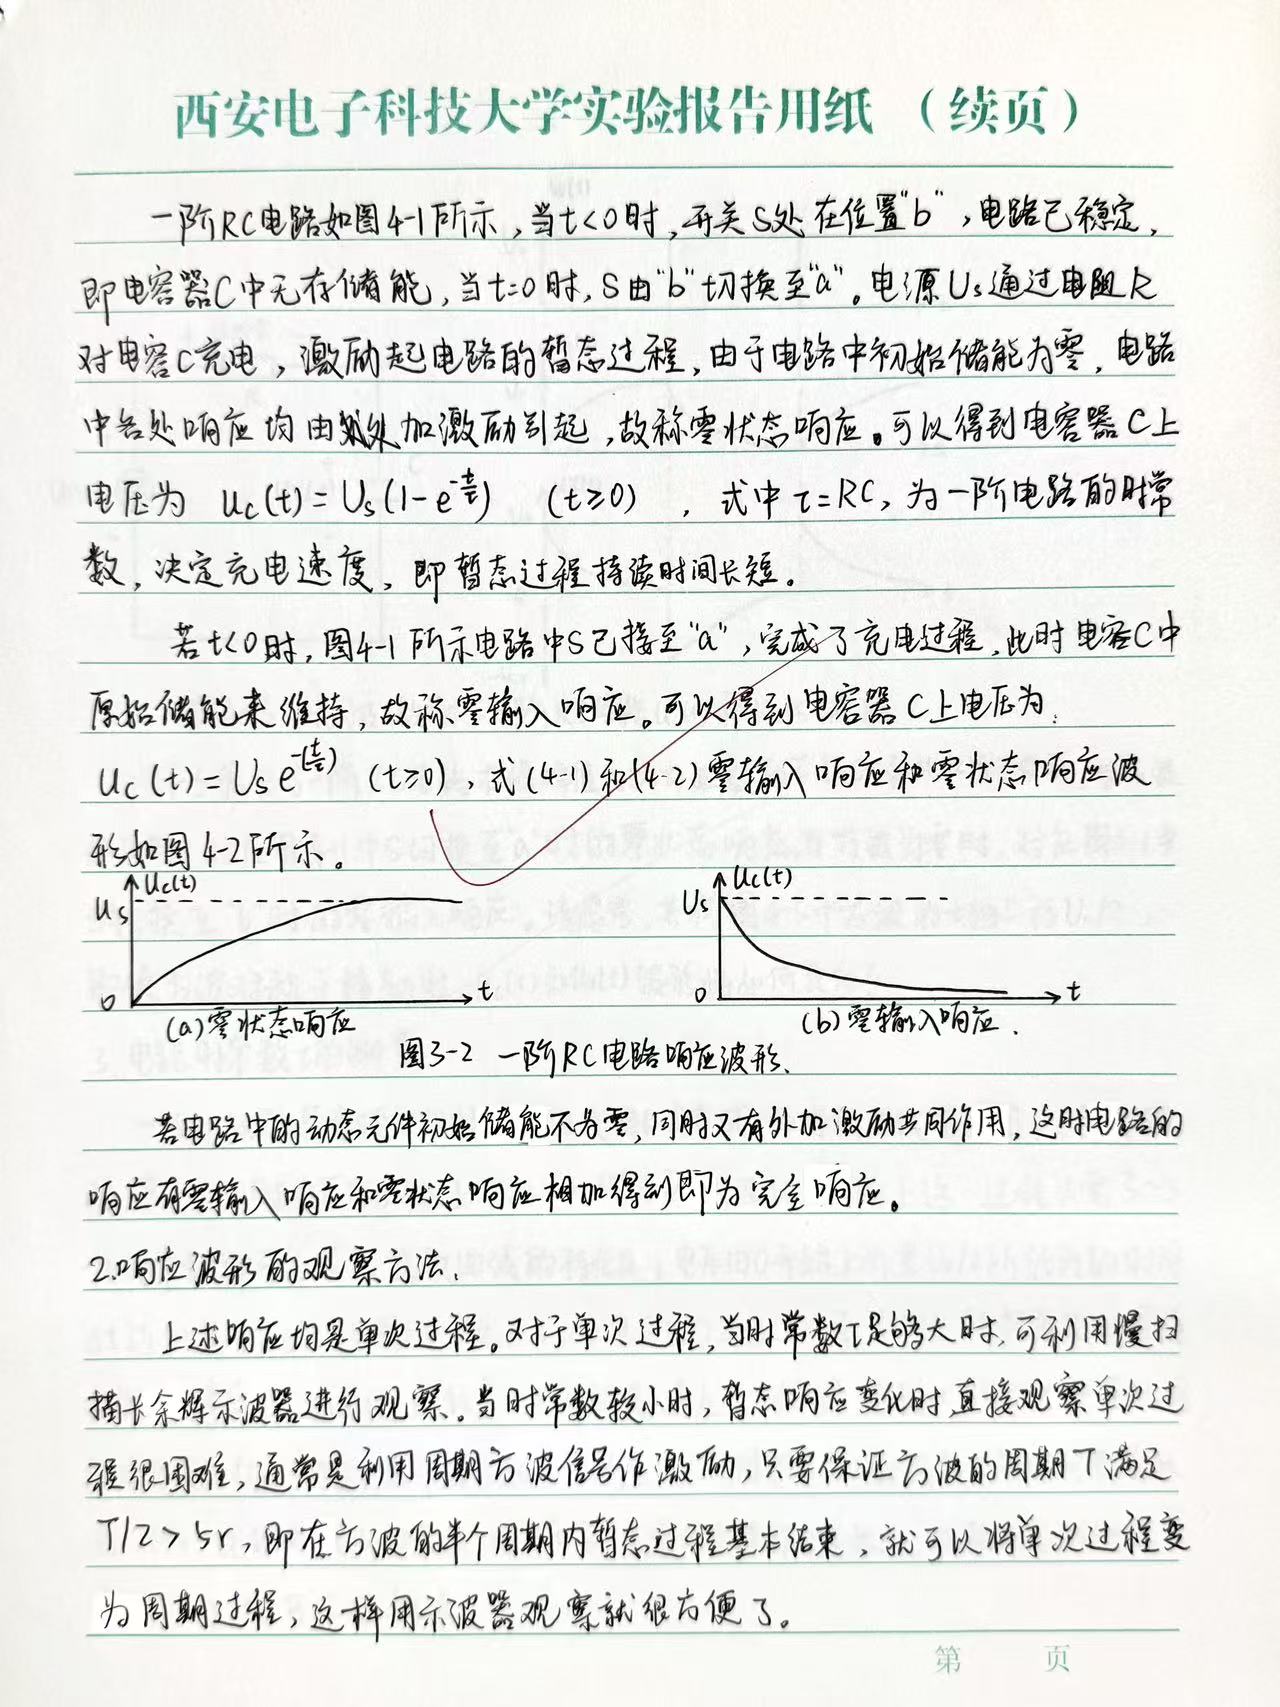 西安电子科技大学实验报告用纸（续页）
一阶RC电路如图4-1所示，当t<0时，开关S处在位置"b"，电路已稳定，
即电容器C中无存储能，当t=0时，S由"b"切换至"a"。电源Us通过电阻R
对电容C充电，激励起电路的暂态过程，由于电路中初始储能为零，电路
中各处响应均由外加激励引起，故称零状态响应。可以得到电容器C上
电压为 Uc(t)=Us(1-e^{-t/τ}) (t≥0)，式中τ=RC，为一阶电路的时常
数，决定充电速度，即暂态过程持续时间长短。
若t<0时，图4-1所示电路中S已接至"a"，完成了充电过程，此时电容C中
原始储能来维持，故称零输入响应。可以得到电容器C上电压为：
Uc(t)=Us e^{-(t/τ)} (t≥0)，式(4-1)和(4-2)零输入响应和零状态响应波
形如图4-2所示。
Uc(t)
Us
0
t
(a)零状态响应
Uc(t)
Us
0
t
(b)零输入响应.
图3-2 一阶RC电路响应波形.
若电路中的动态元件初始储能不为零，同时又有外加激励共同作用，这时电路的
响应有零输入响应和零状态响应相加得到即为完全响应。
2.响应波形的观察方法.
上述响应均是单次过程。对于单次过程，当时常数τ足够大时，可利用慢扫
描长余辉示波器进行观察。当时常数较小时，暂态响应变化时，直接观察单次过
程很困难，通常是利用周期方波信号作激励，只要保证方波的周期T满足
T/2>5τ，即在方波的半个周期内暂态过程基本结束，就可以将单次过程变
为周期过程，这样用示波器观察就很方便了。
第 页